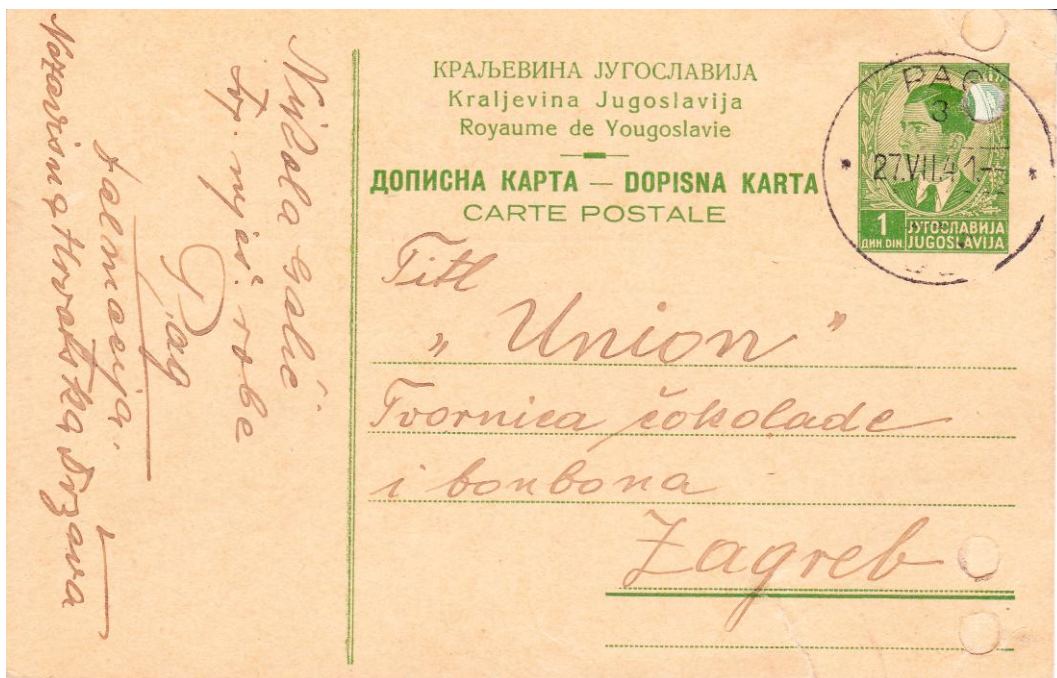 Nikola Galić
trg. mješ. robe
Pag
Dalmacija
Nezavisna Hrvatska Država
КРАЉЕВИНА ЈУГОСЛАВИЈА
Kraljevina Jugoslavija
Royaume de Yougoslavie
ДОПИСНА КАРТА — DOPISNA KARTA
CARTE POSTALE
PAG
3
27.VII.41-
1
ДИН. DIN.
ЈУГОСЛАВИЈА
JUGOSLAVIJA
Titl
„Union”
Tvornica čokolade
i bonbona
Zagreb